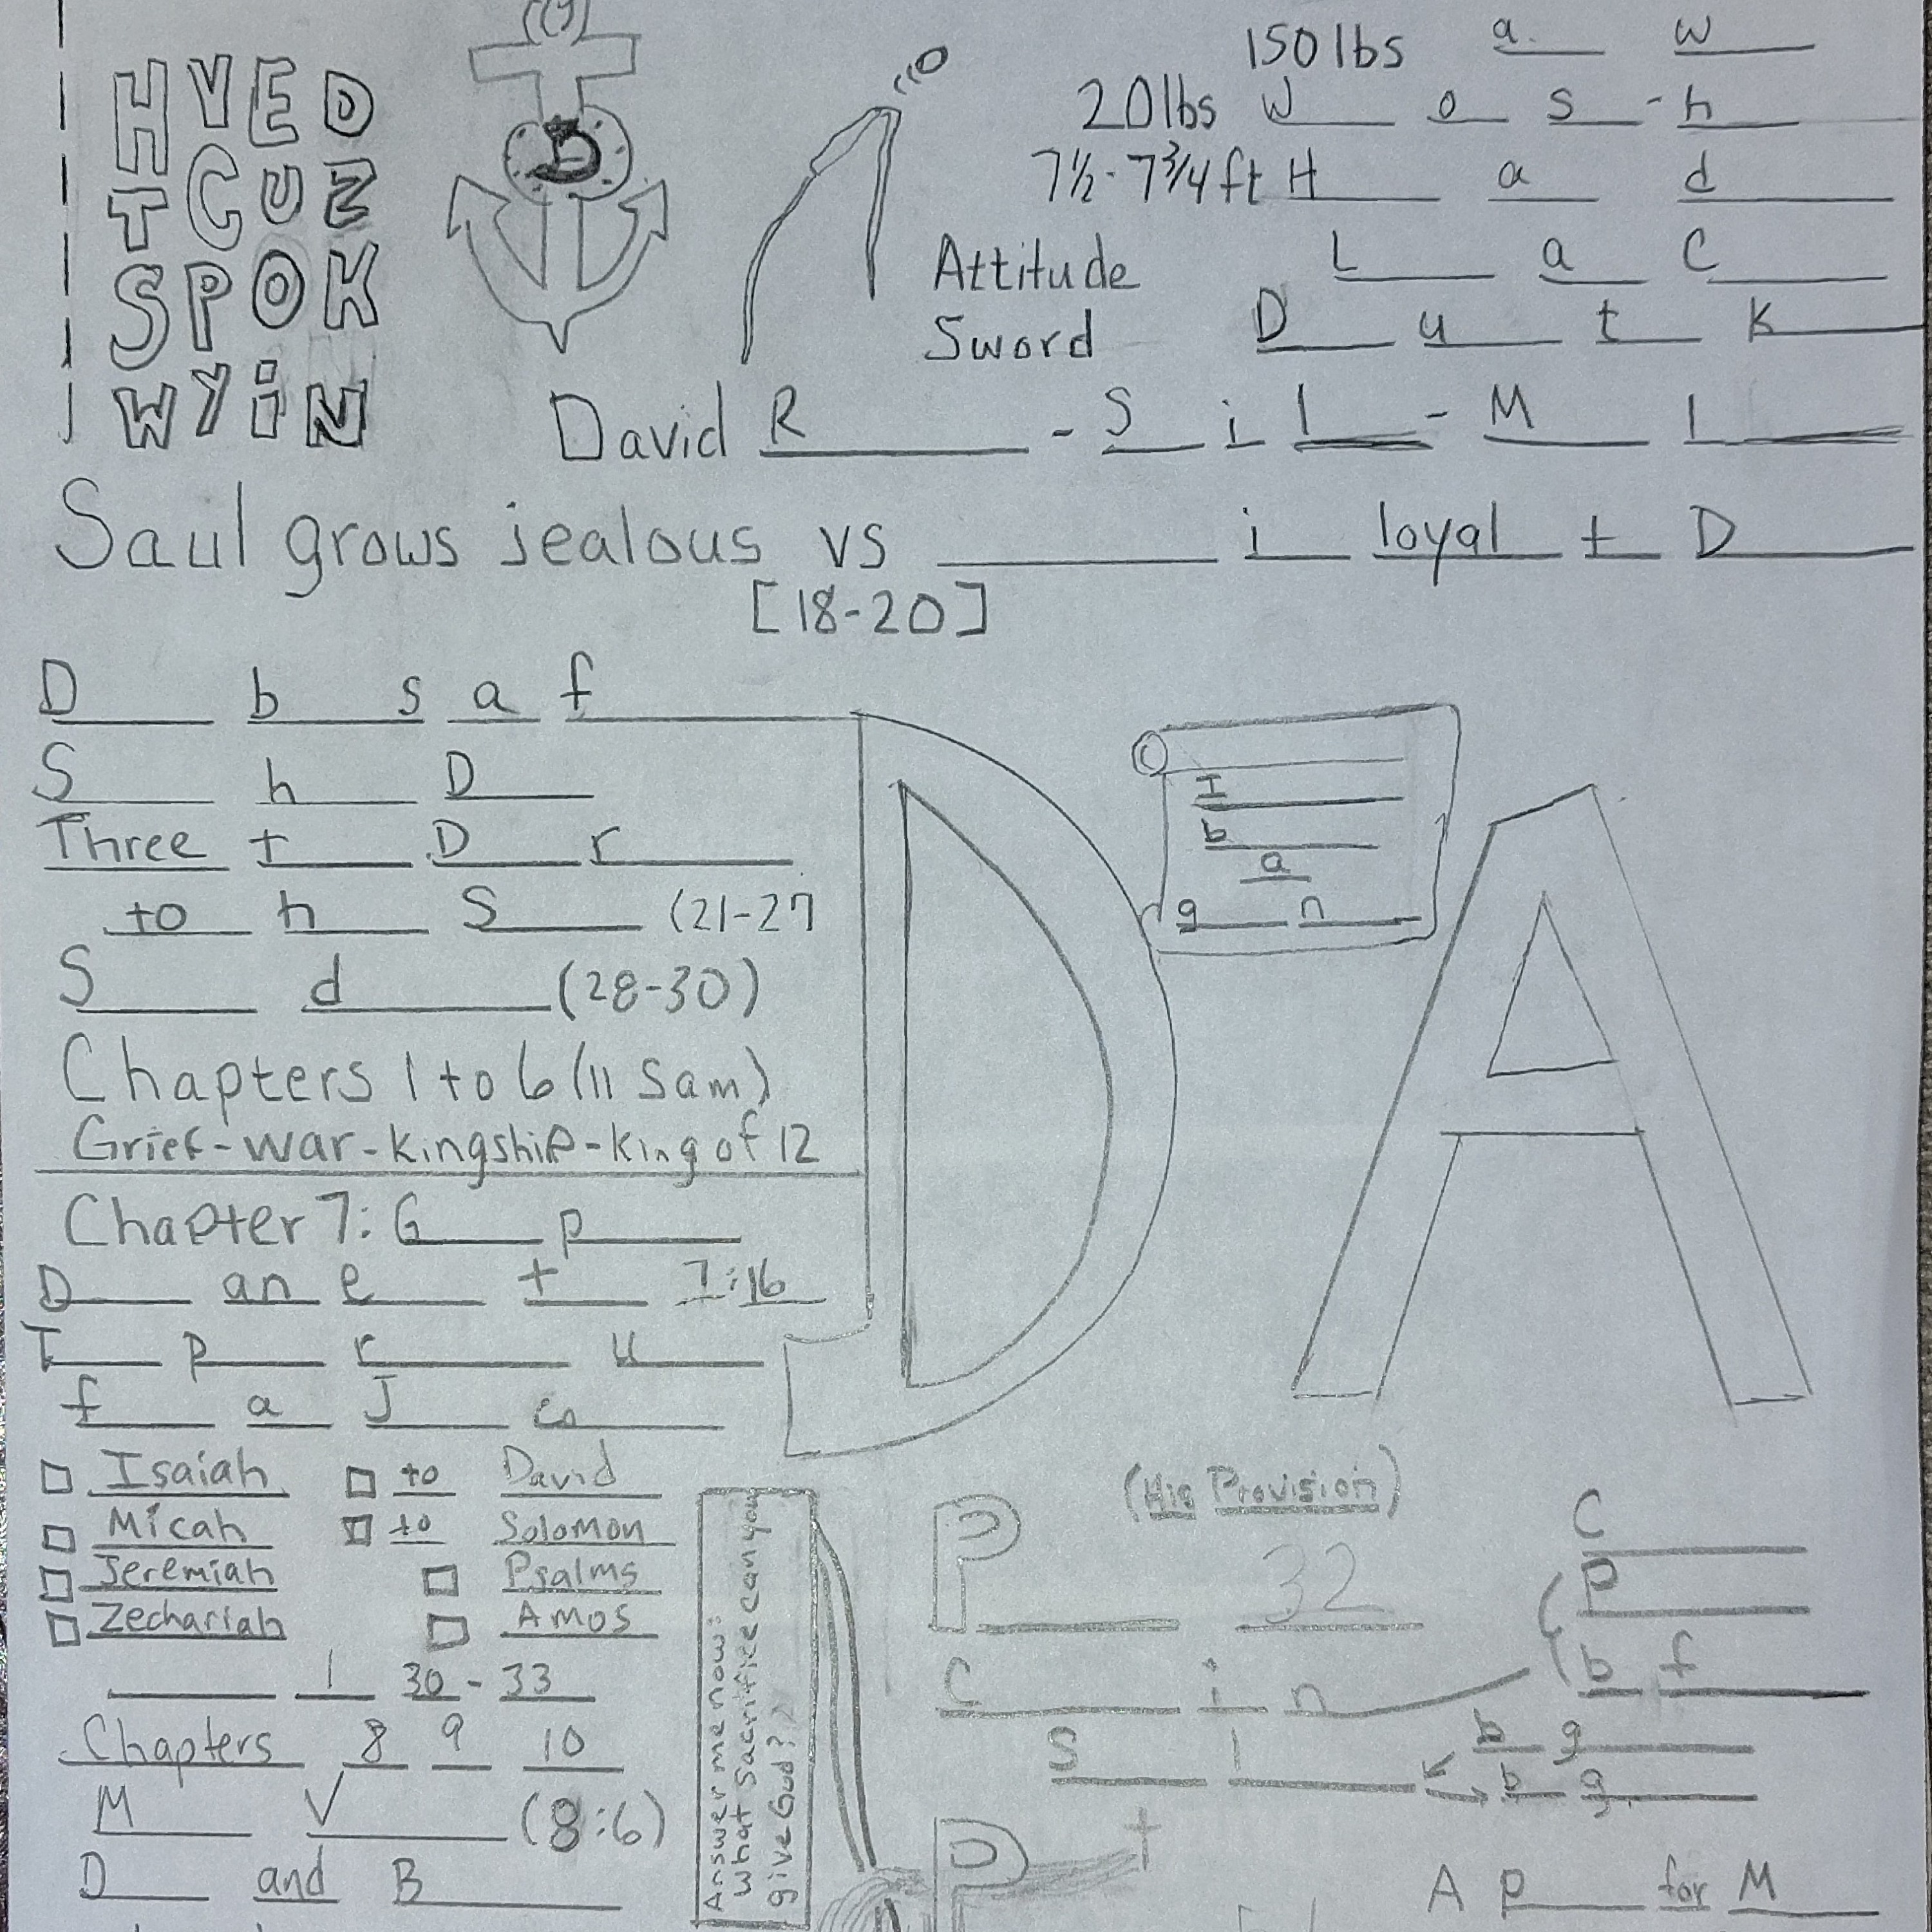 HVED
TCUZ
SPOK
WYiN
D
150 lbs a w
20 lbs W o s - h
7½ - 7¾ ft H a d
Attitude L a C
Sword D u t K
David R - S i l - M l
Saul grows jealous vs i loyal t D
[18-20]
D b s a f
S h D
Three t D r
to h S (21-27
S d (28-30)
Chapters 1 to 6 (11 Sam)
Grief-war-kingship-king of 12
Chapter 7: G p
D an e t 7:16
I p r u
f a J co
I
b
a
g n
D
A
Isaiah to David
Micah to Solomon
Jeremiah Psalms
Zechariah Amos
1 30 - 33
Chapters 8 9 10
M V (8:6)
D and B
Answer me now:
what sacrifice can you
give God??
(His Provision)
P 32
C
P
b f
C i n
S l
b g
b g.
P
A P for M